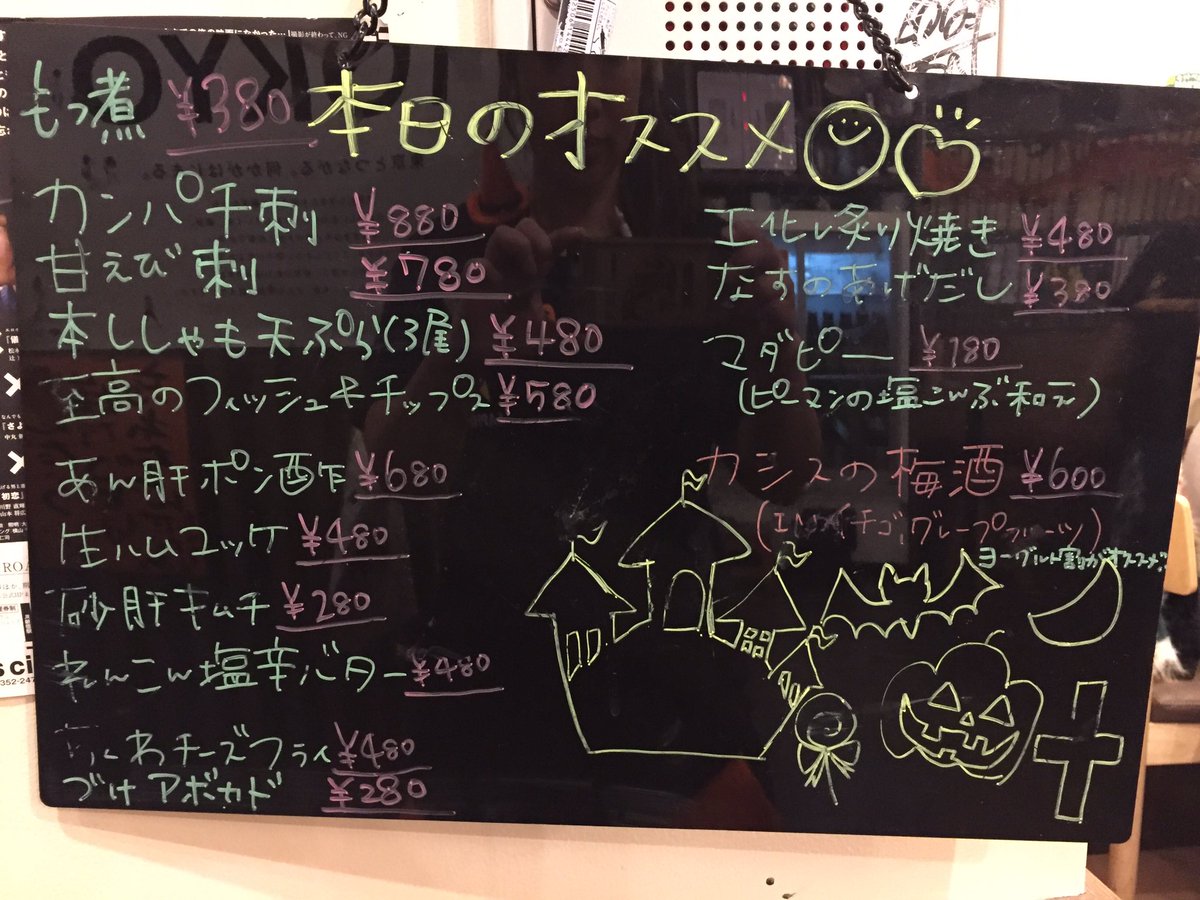 もつ煮 ¥380
本日のオススメ
カンパチ刺 ¥880
甘えび刺 ¥780
本ししゃも天ぷら(3尾) ¥480
至高のフィッシュ&チップス ¥580
あん肝ポン酢 ¥680
生ハムユッケ ¥480
砂肝キムチ ¥280
れんこん塩辛バター ¥480
ちくわチーズフライ ¥480
づけアボカド ¥280
エイヒレ炙り焼き ¥480
なすのあげだし ¥380
マダピー ¥180
(ピーマンの塩こんぶ和え)
カシスの梅酒 ¥600
(INイチゴ、グレープフルーツ)
ヨーグルト割がオススメ!!